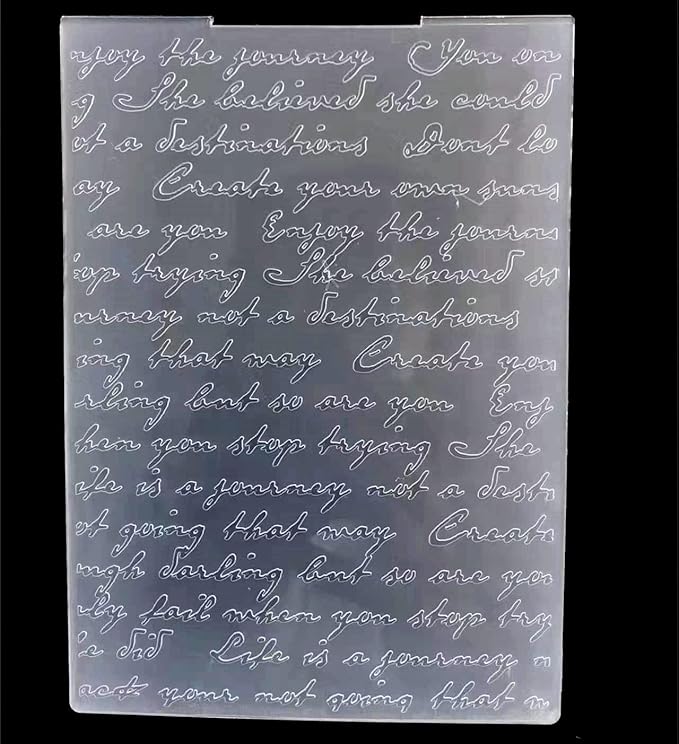 njoy the journey You on
g She believed she could
ot a destinations Dont lo
ay Create your own suns
are you Enjoy the journ
top trying She believed s
urney not a destinations
ing that way Create you
rling but so are you Enj
hen you stop trying She
ife is a journey not a desti
ot going that way Create
ugh darling but so are you
nly fail when you stop try
e did Life is a journey n
back your not going that